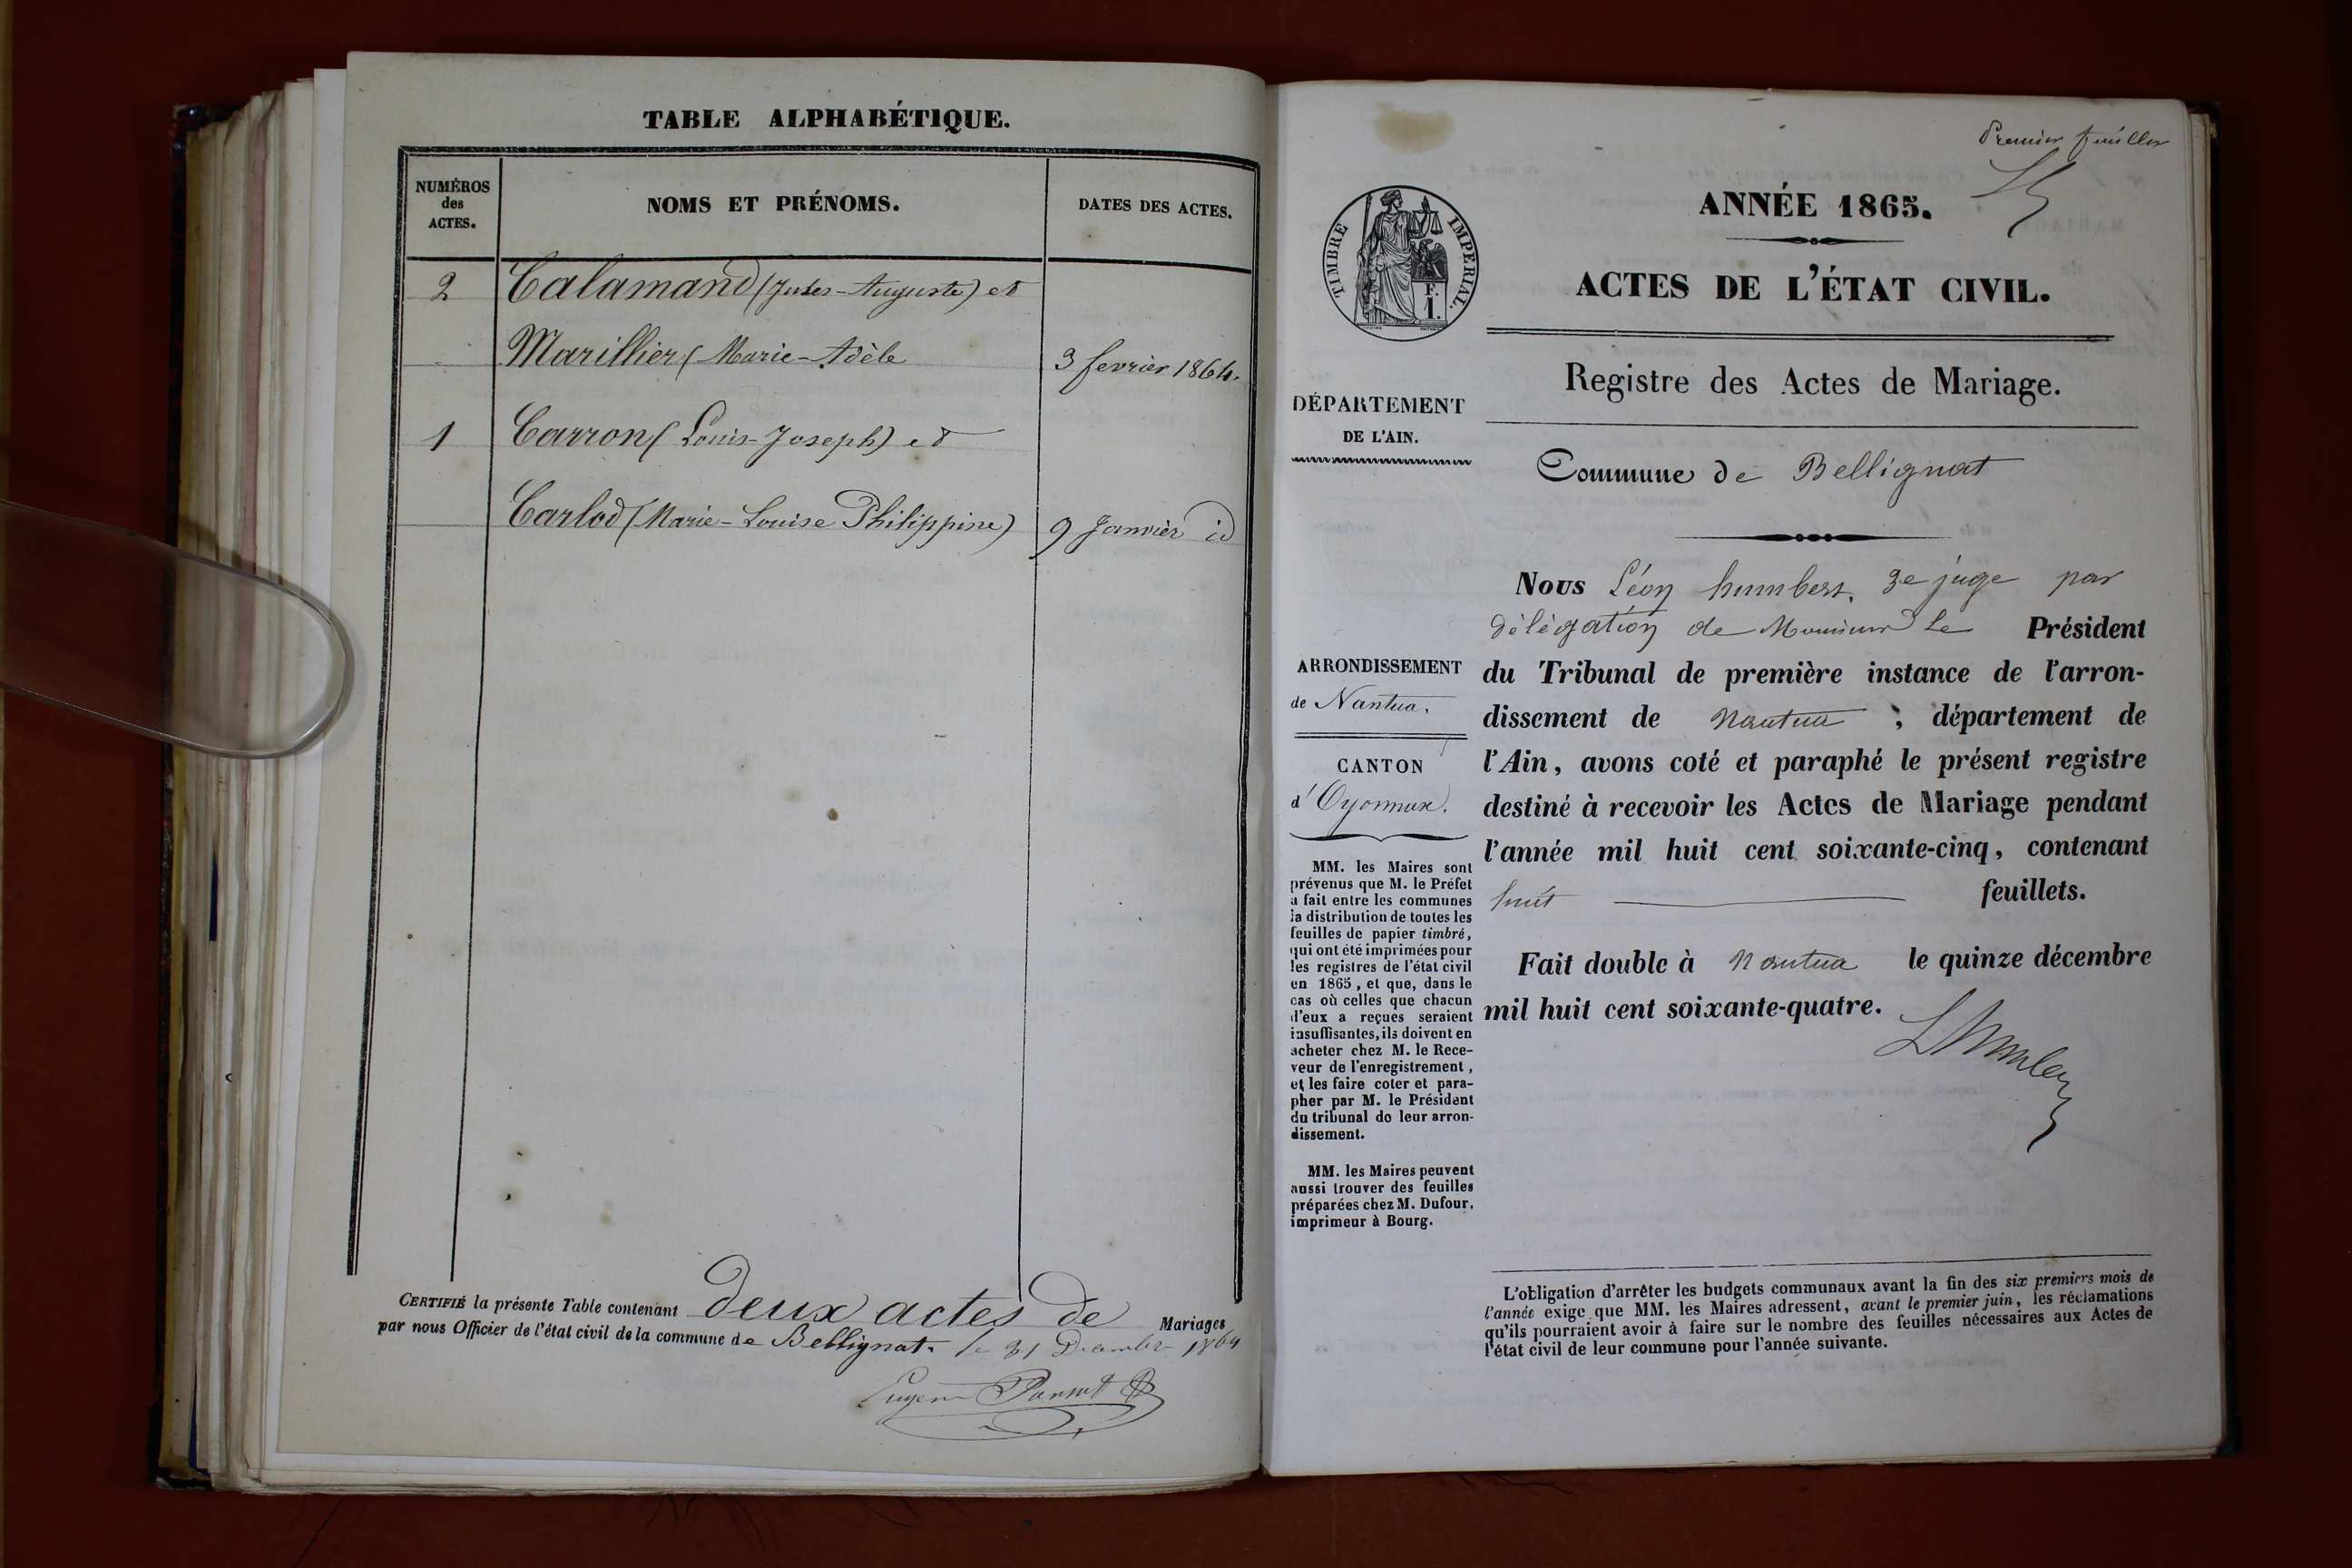 TABLE ALPHABÉTIQUE.
NUMÉROS
des
ACTES.
NOMS ET PRÉNOMS.
DATES DES ACTES.
2 Calamand (Jules-Auguste) et
Marillier (Marie-Adèle 3 fevrier 1864.
1 Carron (Louis-Joseph) et
Carlod (Marie-Louise Philippine) 9 Janvier id
CERTIFIÉ la présente Table contenant deux actes de Mariages
par nous Officier de l'état civil de la commune de Bellignat. le 31 Decembre 1864
Premier feuillet
TIMBRE IMPERIAL.
F.
1.
ANNÉE 1865.
ACTES DE L'ÉTAT CIVIL.
Registre des Actes de Mariage.
DÉPARTEMENT
DE L'AIN.
Commune de Bellignat
ARRONDISSEMENT
de Nantua.
CANTON
d'Oyonnax.
MM. les Maires sont
prévenus que M. le Préfet
a fait entre les communes
la distribution de toutes les
feuilles de papier timbré,
qui ont été imprimées pour
les registres de l'état civil
en 1865, et que, dans le
cas où celles que chacun
d'eux a reçues seraient
insuffisantes, ils doivent en
acheter chez M. le Rece-
veur de l'enregistrement,
et les faire coter et para-
pher par M. le Président
du tribunal de leur arron-
dissement.
MM. les Maires peuvent
aussi trouver des feuilles
préparées chez M. Dufour,
imprimeur à Bourg.
Nous Léon humbert, 3e juge par
délégation de Monsieur Le Président
du Tribunal de première instance de l'arron-
dissement de Nantua ; département de
l'Ain, avons coté et paraphé le présent registre
destiné à recevoir les Actes de Mariage pendant
l'année mil huit cent soixante-cinq, contenant
huit feuillets.
Fait double à Nantua le quinze décembre
mil huit cent soixante-quatre.
L'obligation d'arrêter les budgets communaux avant la fin des six premiers mois de
l'année exige que MM. les Maires adressent, avant le premier juin, les réclamations
qu'ils pourraient avoir à faire sur le nombre des feuilles nécessaires aux Actes de
l'état civil de leur commune pour l'année suivante.